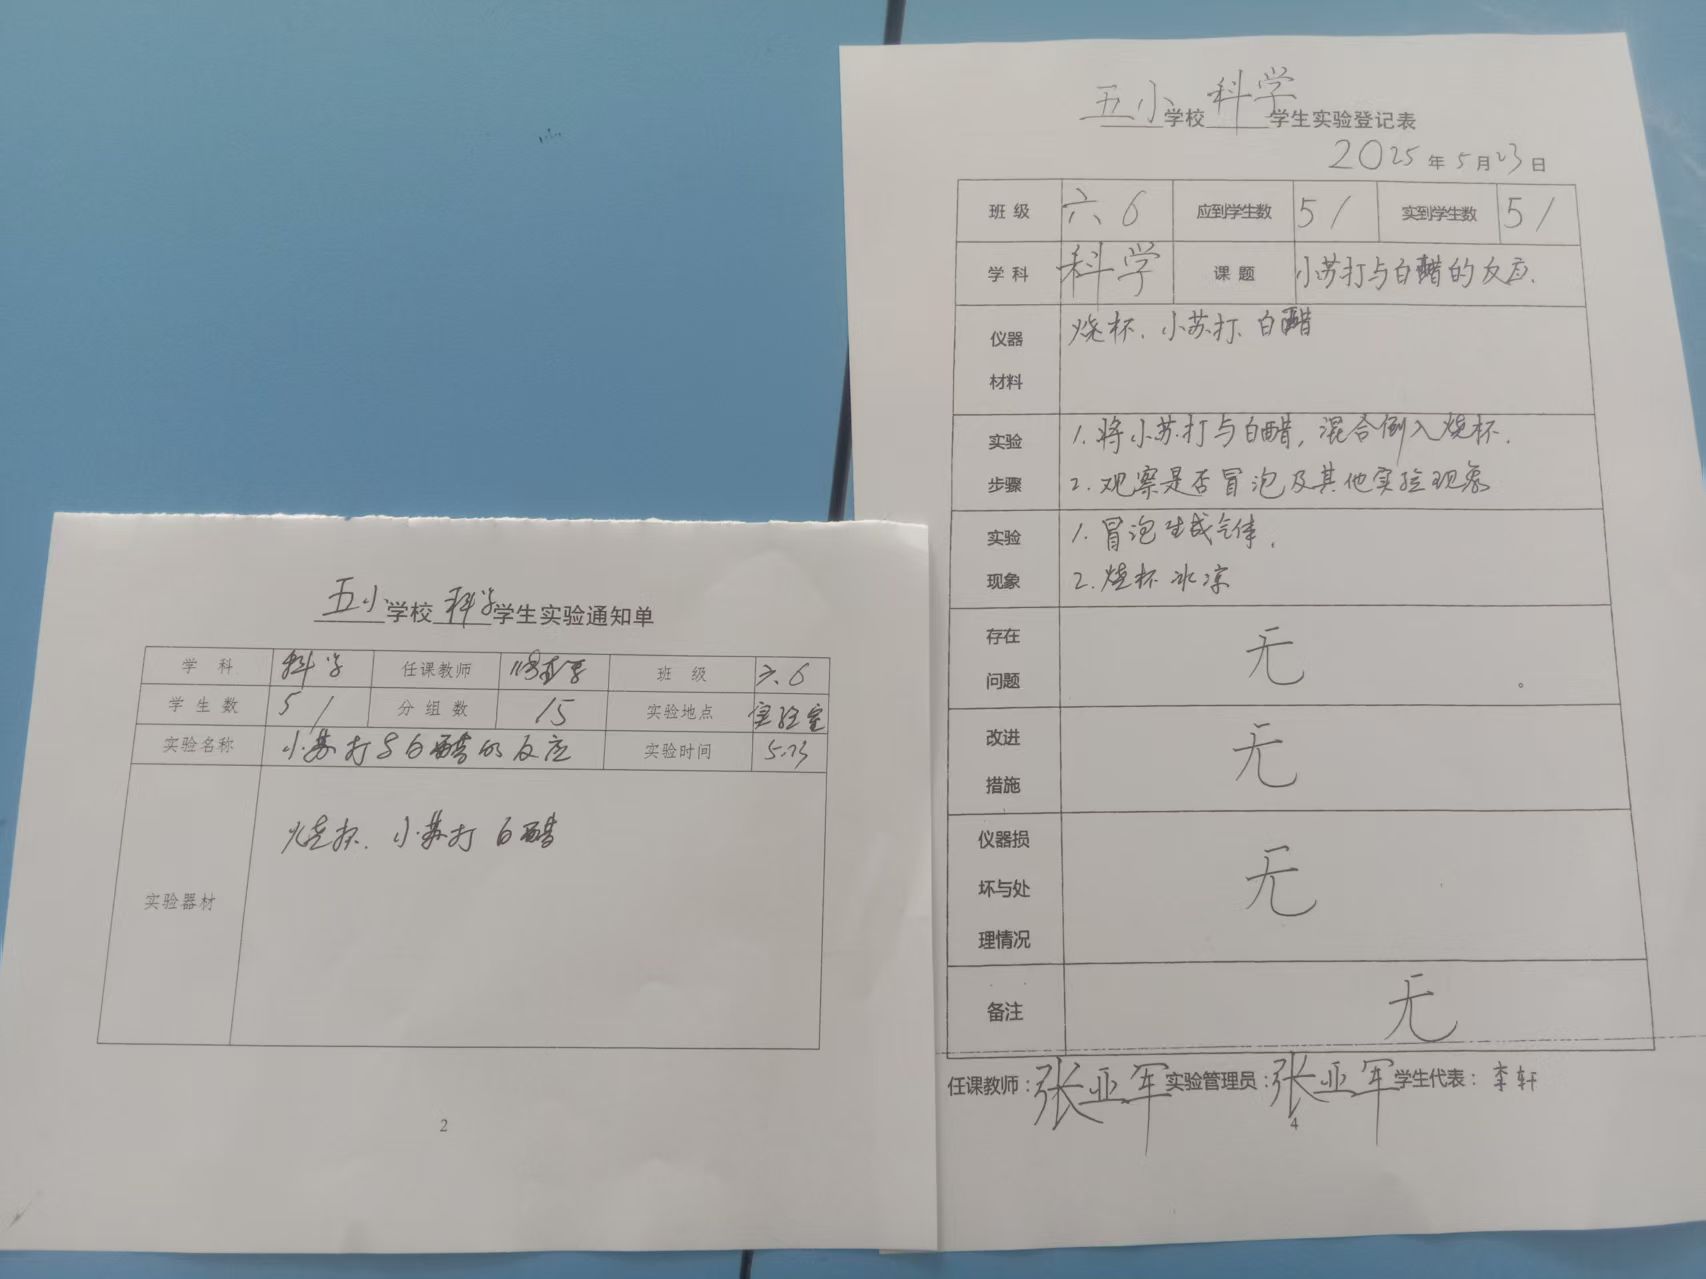 五小学校科学学生实验通知单
学科 科学 任课教师 班级 六6
学生数 51 分组数 15 实验地点 实验室
实验名称 小苏打与白醋的反应 实验时间 5.23
实验器材 烧杯、小苏打 白醋
2
五小学校科学学生实验登记表
2025年5月23日
班级 六6 应到学生数 51 实到学生数 51
学科 科学 课题 小苏打与白醋的反应.
仪器 烧杯、小苏打、白醋
材料
实验 1.将小苏打与白醋,混合倒入烧杯.
步骤 2.观察是否冒泡及其他实验现象
实验 1.冒泡生成气体.
现象 2.烧杯冰凉
存在
问题 无
改进
措施 无
仪器损
坏与处 无
理情况
备注 无
任课教师:张亚军 实验管理员:张亚军 学生代表:李轩
4